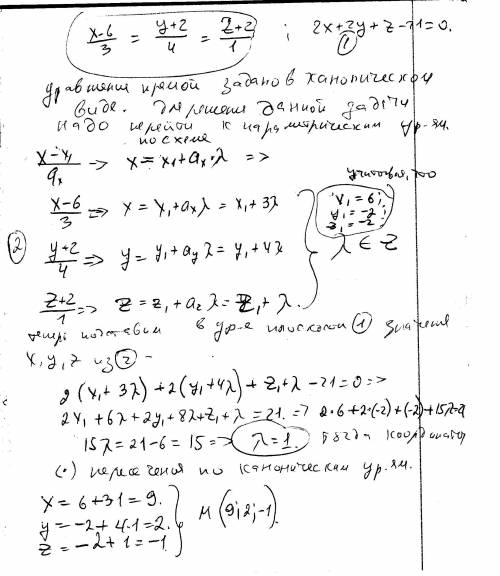 x-6/3 = y+2/4 = z+2/1 ; 2x+2y+z-21=0. ①
уравнение прямой задано в каноническом
виде. Для решения данной задачи
надо перейти к параметрическим ур.ям.
по схеме
x-x₁/aₓ => x = x₁+aₓ·λ =>
x-6/3 => x = x₁+aₓλ = x₁+3λ
учитывая, что
x₁=6;
y₁=-2;
z₁=-2
② y+2/4 => y = y₁+a_yλ = y₁+4λ
λ ∈ Z
z+2/1 => z = z₁+a_zλ = z₁+λ.
теперь подставим в ур-е плоскости ① значения
x,y,z из ② -
2(x₁+3λ)+2(y₁+4λ)+z₁+λ-21=0 =>
2x₁+6λ+2y₁+8λ+z₁+λ=21. => 2·6+2·(-2)+(-2)+15λ=21
15λ=21-6=15 => λ=1. Тогда координаты
(·) пересечения по каноническим ур.ям.
x = 6+3·1 = 9.
y = -2+4·1 = 2.
z = -2+1 = -1
M (9; 2; -1).